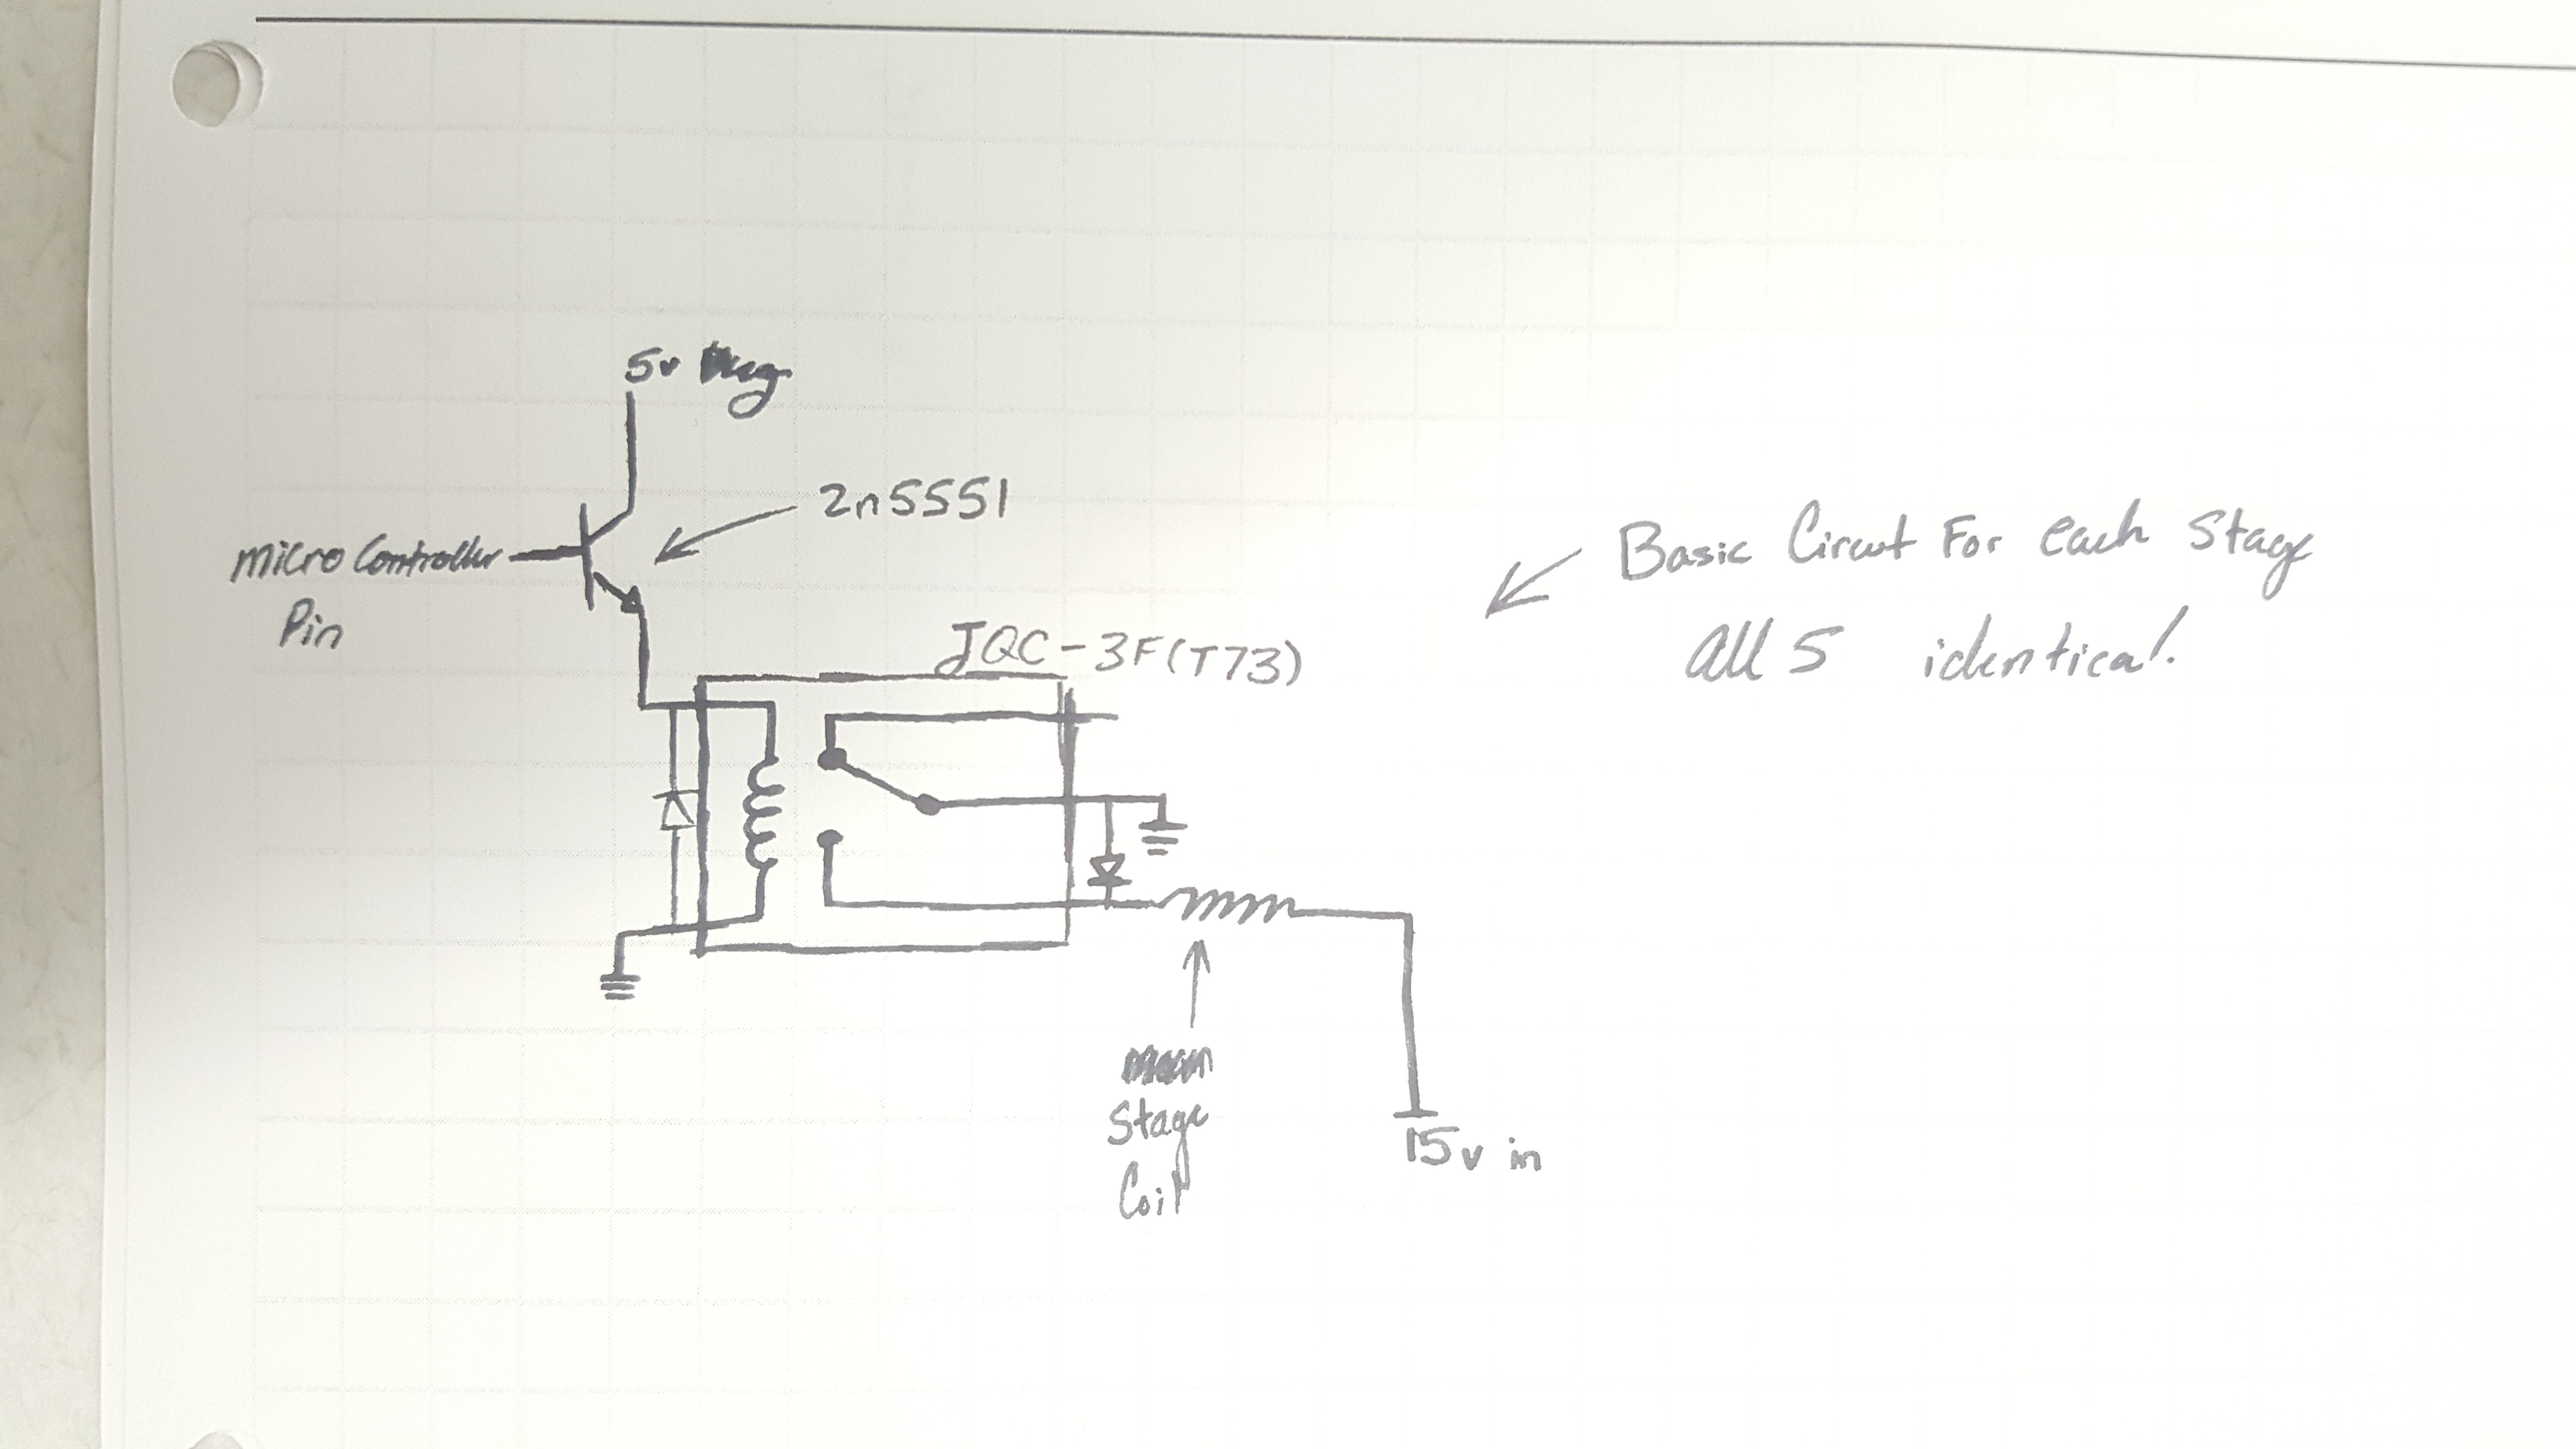 5v
2n5551
Micro Controller
Pin
Basic Circut For each Stage
All 5 identical.
JQC-3F(T73)
Stage
Coil
15v in